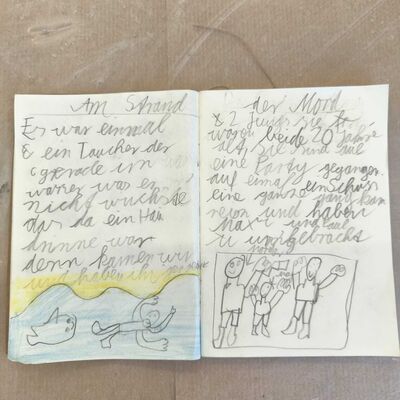 Am Strand
Es war einmal
& ein Taucher der
gerade im
wasser war er
nicht wuchste
das da ein Hai
drinne war
denn kamen wir
und haben ihn
der Mord
& 2 Jungs sie
waren beide 20 jahre
alt sie sind auf
eine Party gegangen
auf einmal ein Schuss
eine ganze gang kam
rein und haben
Max und
umgebracht